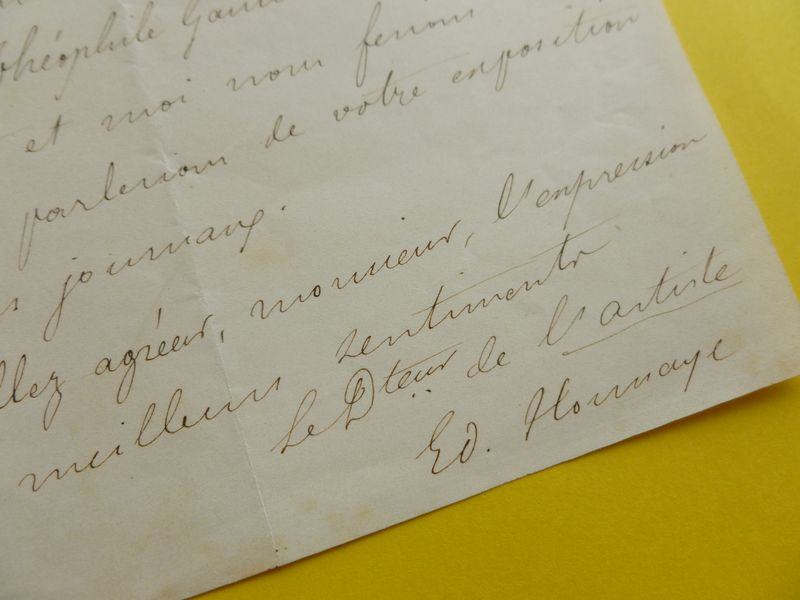 Théophile Gau
et moi nous ferions
parlerions de votre exposition
s journaux.
llez agréer, monsieur, l'expression
meilleurs sentiments
Le Dteur de l'artiste
Ed. Houssaye